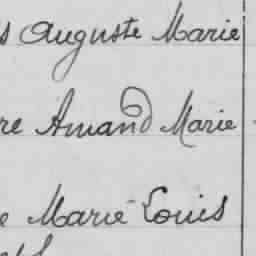 s Auguste Marie
re Amand Marie
e Marie Louis